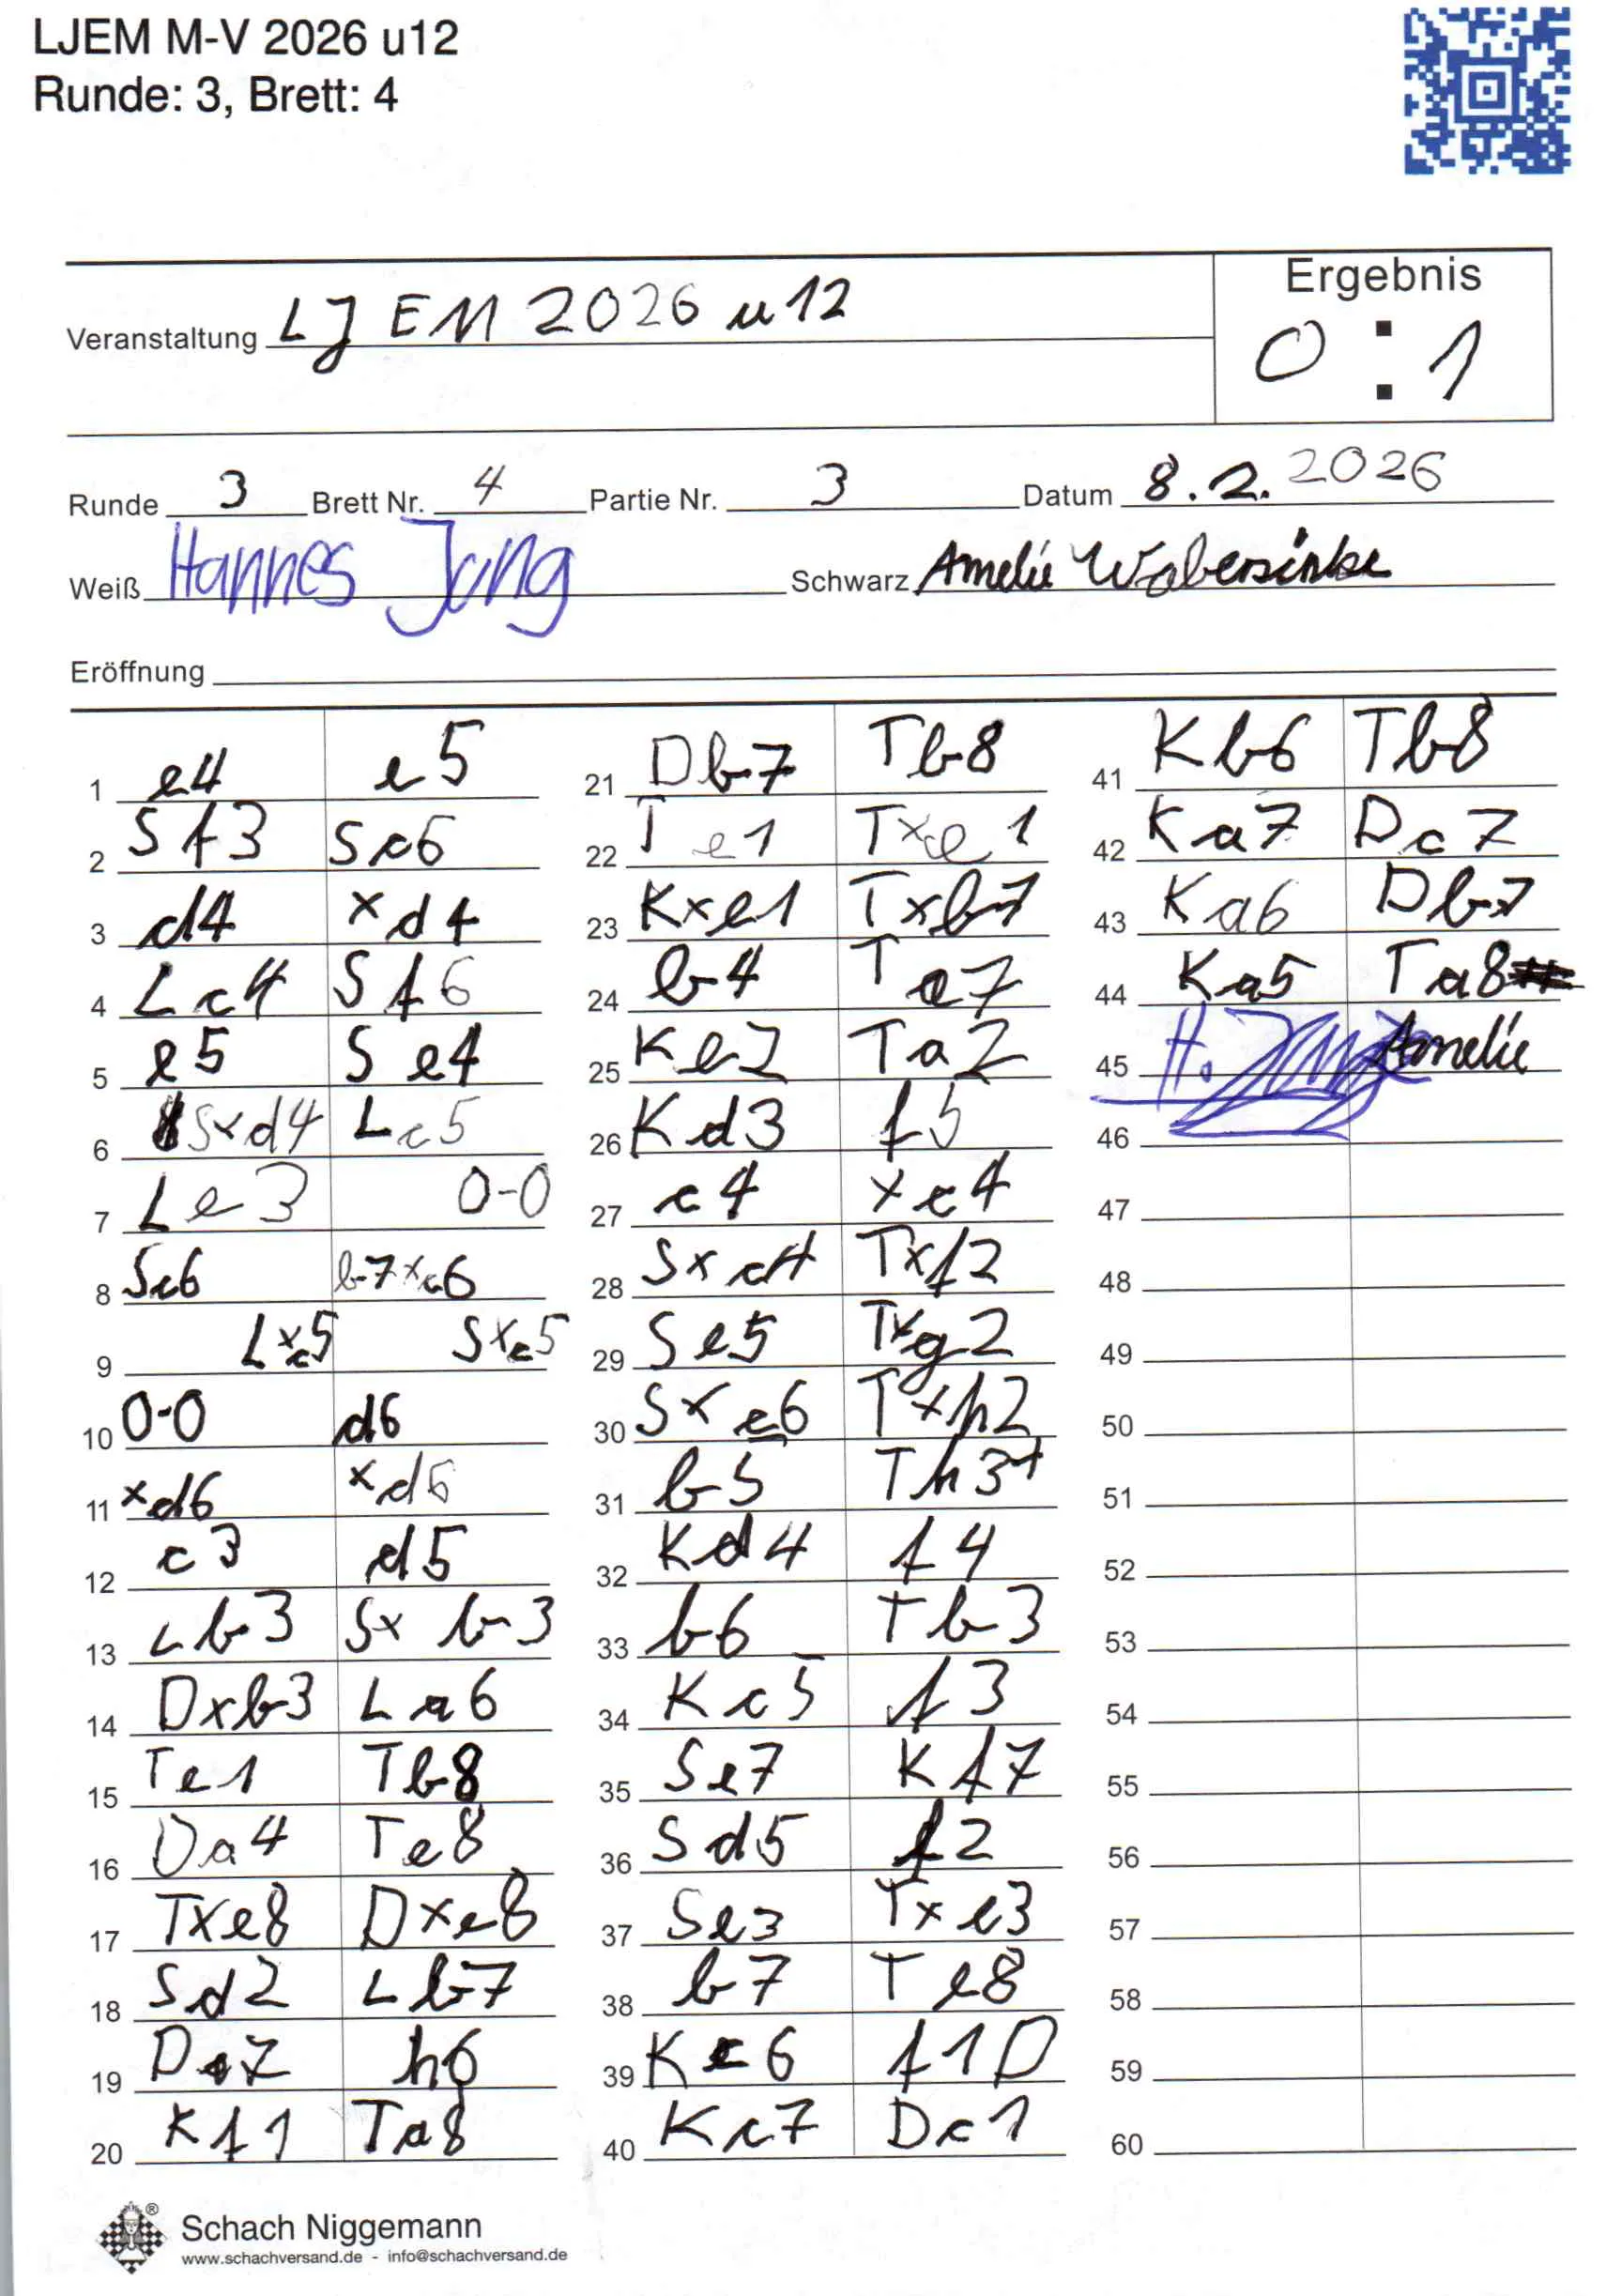 LJEM M-V 2026 u12
Runde: 3, Brett: 4
Ergebnis
Veranstaltung LJEM 2026 u12
0 : 1
Runde 3 Brett Nr. 4 Partie Nr. 3 Datum 8.2.2026
Weiß Hannes Jung Schwarz Amelie Wabersinke
Eröffnung
1 e4 e5
2 Sf3 Sc6
3 d4 xd4
4 Lc4 Sf6
5 e5 Se4
6 Sxd4 Lc5
7 Le3 0-0
8 Sc6 b7xc6
9 Lxc5 Sxc5
10 0-0 d6
11 xd6 xd6
12 c3 d5
13 Lb3 Sxb3
14 Dxb3 La6
15 Te1 Tb8
16 Da4 Te8
17 Txe8 Dxe8
18 Sd2 Lb7
19 Da7 h6
20 Kf1 Ta8
21 Db7 Tb8
22 Te1 Txe1
23 Kxe1 Txb7
24 b4 Ta7
25 Ke2 Ta2
26 Kd3 f5
27 c4 xc4
28 Sxc4 Txf2
29 Se5 Txg2
30 Sxc6 Txh2
31 b5 Th3+
32 Kd4 f4
33 b6 Tb3
34 Kc5 f3
35 Se7 Kf7
36 Sd5 f2
37 Se3 Txe3
38 b7 Te8
39 Kc6 f1D
40 Kc7 Dc1
41 Kb6 Tb8
42 Ka7 Dc7
43 Ka6 Db7
44 Ka5 Ta8
45 H. Jung Amelie
46
47
48
49
50
51
52
53
54
55
56
57
58
59
60
Schach Niggemann ®
www.schachversand.de - info@schachversand.de